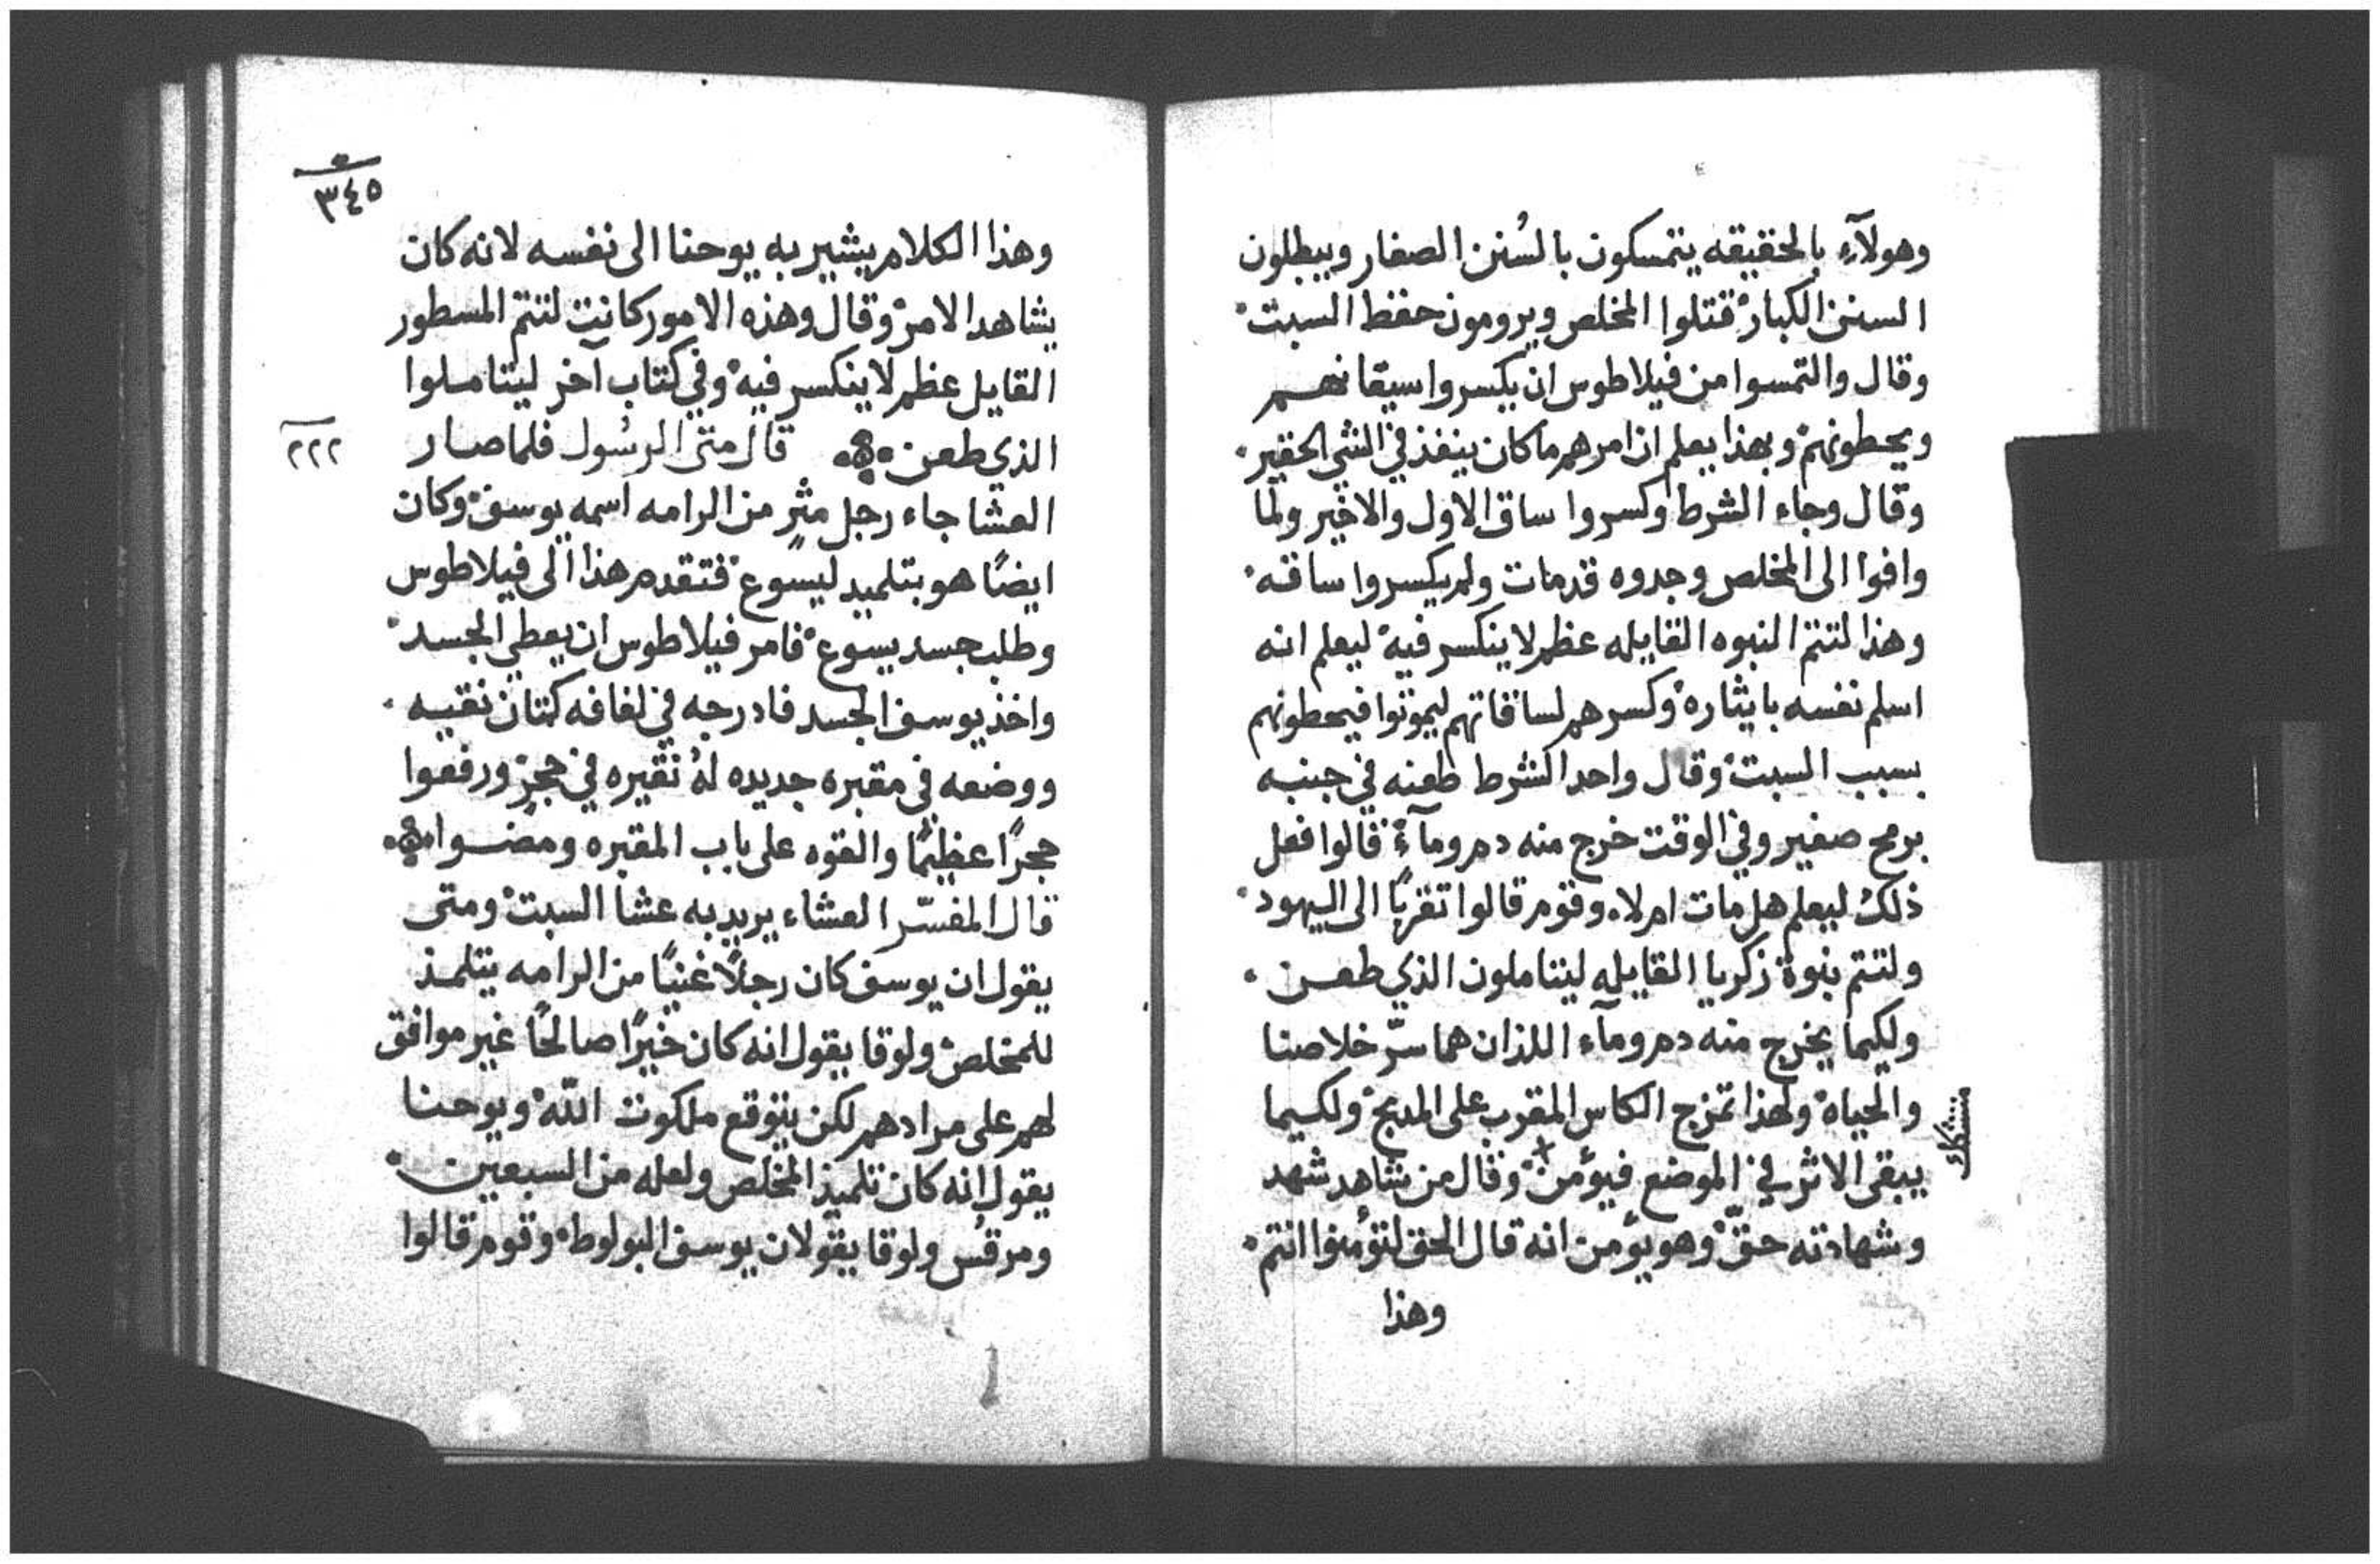 وهولآءِ بالحقيقه يتمسكون بالسُنن الصغار ويبطلون
السنن الكبار قتلوا المخلص ويرومون حفظ السبت
وقال والتمسوا من فيلاطوس ان يكسروا سيقانهم
ويحطونهم وبهذا يعلم ان امرهم ما كان ينفذ في الشي الحقير
وقال وجاء الشرط وكسروا ساق الاول والاخير ولما
وافوا الى المخلص وجدوه قد مات ولم يكسروا ساقه
وهذا لتتم النبوه القايله عظم لا ينكسر فيه ليعلم انه
اسلم نفسه بايثاره وكسرهم لساقاتهم ليموتوا فيحطونهم
بسبب السبت وقال واحد الشرط طعنه في جنبه
برمح صغير وفي الوقت خرج منه دم ومآء قالوا فعل
ذلك ليعلم هل مات ام لا وقوم قالوا تقربًا الى اليهود
ولتتم بنوة زكريا القايله ليتاملون الذي طعن
ولكيما يخرج منه دم ومآء اللذان هما سرّ خلاصنا
والحياه ولهذا تمزج الكاس المقرب على المدبح ولكيما
يبقى الاثر في الموضع فيؤمن وقال من شاهد شهد
وشهادته حقّ وهو يؤمن انه قال الحق لتؤمنوا انتم
وهذا
٣٤٥
وهذا الكلام يشير به يوحنا الى نفسه لانه كان
يشاهد الامر وقال وهذه الامور كانت لتتم المسطور
القايل عظم لا ينكسر فيه وفي كتاب آخر ليتاملوا
الذي طعن قال متى الرسُول فلما صار
٢٢٢
العشا جاء رجل مثرٍ من الرامه اسمه يوسف وكان
ايضًا هو بتلميد ليسوع فتقدم هذا الى فيلاطوس
وطلب جسد يسوع فامر فيلاطوس ان يعطي الجسد
واخذ يوسف الجسد فادرجه في لفافه كتان نقيه
ووضعه في مقبره جديده لهُ نقيره في حجرٍ ورفعوا
حجرًا عظيمًا والقوه على باب المقبره ومضوا
قال المفسّر العشاء يريد به عشا السبت ومتى
يقول ان يوسف كان رجلًا غنيًا من الرامه يتلمذ
للمخلص ولوقا يقول انه كان خيرًا صالحًا غير موافق
لهم على مرادهم لكن يتوقع ملكوت اللّه ويوحنا
يقول انه كان تلميذ المخلص ولعله من السبعين
ومرقس ولوقا يقولان يوسف البولوط وقوم قالوا